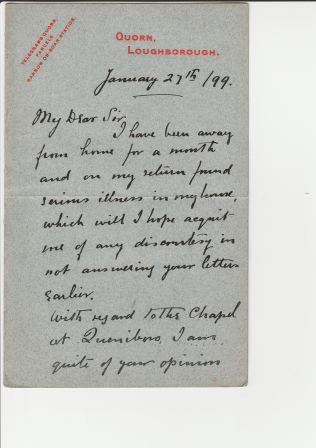 TELEGRAMS QUORN.
PARCELS
BARROW-ON-SOAR STATION.
QUORN,
LOUGHBOROUGH.
January 27th/99.
My Dear Sir,
I have been away
from home for a month
and on my return found
serious illness in my house,
which will I hope acquit
me of any discourtesy in
not answering your letters
earlier.
With regard to the Chapel
at Queniboro, I am
quite of your opinion